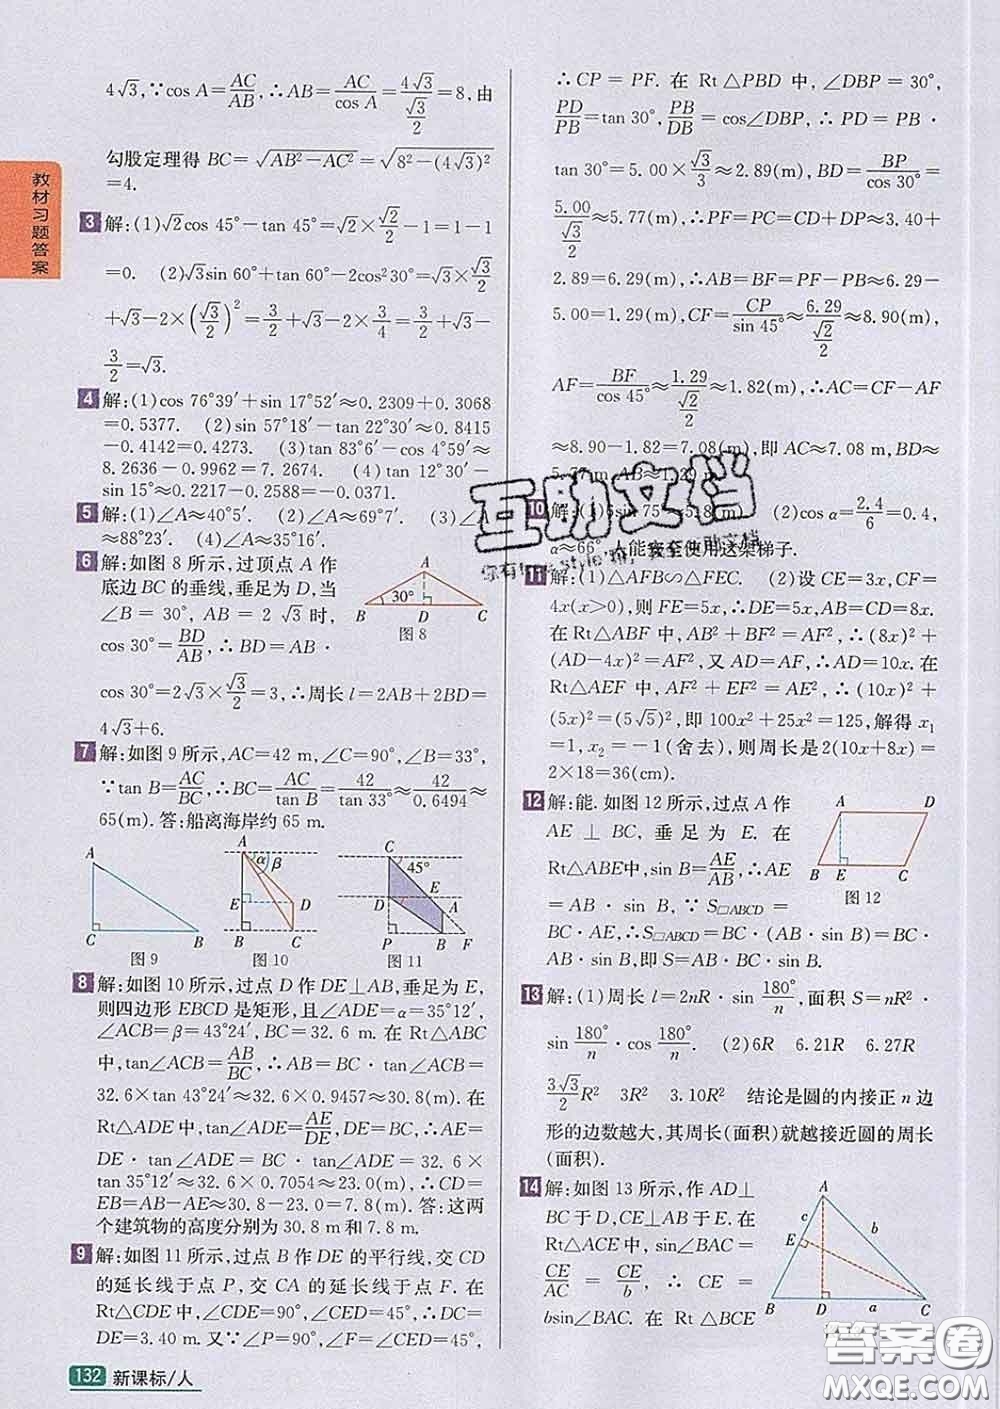 教材习题答案
4√3,∵cos A=AC/AB,∴AB=AC/cos A=4√3/(√3/2)=8,由
勾股定理得 BC=√(AB²−AC²)=√(8²−(4√3)²)
=4.
3 解:(1)√2cos 45°−tan 45°=√2×√2/2−1=1−1
=0. (2)√3sin 60°+tan 60°−2cos²30°=√3×√3/2
+√3−2×(√3/2)²=3/2+√3−2×3/4=3/2+√3−
3/2=√3.
4 解:(1)cos 76°39′+sin 17°52′≈0.2309+0.3068
=0.5377. (2)sin 57°18′−tan 22°30′≈0.8415
−0.4142=0.4273. (3)tan 83°6′−cos 4°59′≈
8.2636−0.9962=7.2674. (4)tan 12°30′−
sin 15°≈0.2217−0.2588=−0.0371.
5 解:(1)∠A≈40°5′. (2)∠A≈69°7′. (3)∠A
≈88°23′. (4)∠A=31°.
6 解:如图 8 所示,过顶点 A 作
底边 BC 的垂线,垂足为 D,当
∠B = 30°, AB = 2√3 时,
cos 30°=BD/AB, ∴ BD = AB ·
cos 30°=2√3×√3/2=3,∴周长 l=2AB+2BD=
4√3+6.
A
30°
B D C
图 8
7 解:如图 9 所示,AC=42 m,∠C=90°,∠B=33°,
∵tan B=AC/BC,∴BC=AC/tan B=42/tan 33°≈42/0.6494≈
65(m). 答:船离海岸约 65 m.
A
C B
图 9
A α β
E D
B C
图 10
C 45°
E
D A
P B F
图 11
8 解:如图 10 所示,过点 D 作 DE⊥AB,垂足为 E,
则四边形 EBCD 是矩形,且∠ADE=α=35°12′,
∠ACB=β=43°24′,BC=32.6 m. 在 Rt△ABC
中,tan∠ACB=AB/BC,∴AB=BC·tan∠ACB=
32.6×tan 43°24′≈32.6×0.9457≈30.8(m). 在
Rt△ADE 中,tan∠ADE=AE/DE,DE=BC,∴AE=
DE · tan∠ADE = BC · tan∠ADE = 32.6 ×
tan 35°12′≈32.6×0.7054≈23.0(m),∴CD=
EB=AB−AE≈30.8−23.0=7.8(m). 答:这两
个建筑物的高度分别为 30.8 m 和 7.8 m.
9 解:如图 11 所示,过点 B 作 DE 的平行线,交 CD
的延长线于点 P,交 CA 的延长线于点 F. 在
Rt△CDE 中,∠CDE=90°,∠CED=45°,∴DC=
DE=3.40 m. 又∵∠P=90°,∠F=∠CED=45°,
∴ CP = PF. 在 Rt △PBD 中,∠DBP = 30°,
PD/PB=tan 30°,PB/DB=cos∠DBP,∴ PD = PB ·
tan 30°=5.00×√3/3≈2.89(m),BD=BP/cos 30°=
5.00/(√3/2)≈5.77(m),∴PF=PC=CD+DP≈3.40+
2.89=6.29(m),∴AB=BF=PF−PB≈6.29−
5.00=1.29(m),CF=CP/sin 45°≈6.29/(√2/2)≈8.90(m),
AF=BF/cos 45°≈1.29/(√2/2)≈1.82(m),∴AC=CF−AF
≈8.90−1.82=7.08(m),即 AC≈7.08 m,BD≈
5.77 m,AB≈1.29 m.
10 (2)cos α=2.4/6=0.4,
α≈66° 人能安全使用这架梯子.
11 解:(1)△AFB∽△FEC. (2)设 CE=3x,CF=
4x(x>0),则 FE=5x,∴DE=5x,AB=CD=8x.
在 Rt△ABF 中,AB²+BF²=AF²,∴(8x)²+
(AD−4x)²=AF²,又 AD=AF,∴AD=10x. 在
Rt△AEF 中,AF²+EF²=AE²,∴(10x)²+
(5x)²=(5√5)²,即 100x²+25x²=125,解得 x₁
=1,x₂=−1(舍去),则周长是 2(10x+8x)=
2×18=36(cm).
12 解:能. 如图 12 所示,过点 A 作
AE ⊥ BC, 垂足为 E. 在
Rt△ABE中,sin B=AE/AB,∴AE
=AB · sin B, ∵ S□ABCD =
BC·AE,∴S□ABCD=BC·(AB·sin B)=
BC·AB·sin B,即 S=AB·BC·sin B.
A D
B E C
图 12
13 解:(1)周长 l=2nR·sin 180°/n,面积 S=nR²·
sin 180°/n·cos 180°/n. (2)6R 6.21R 6.27R
3√3/2R² 3R² 3.10R² 结论是圆的内接正 n 边
形的边数越大,其周长(面积)就越接近圆的周长
(面积).
14 解:如图 13 所示,作 AD⊥
BC于 D,CE⊥AB于 E. 在
Rt△ACE 中,sin∠BAC=
CE/AC = CE/b, ∴ CE =
bsin∠BAC. 在 Rt △BCE
A
c b
E
B D a C
132 新课标/人
互助文档
答案圈
MXQE.COM